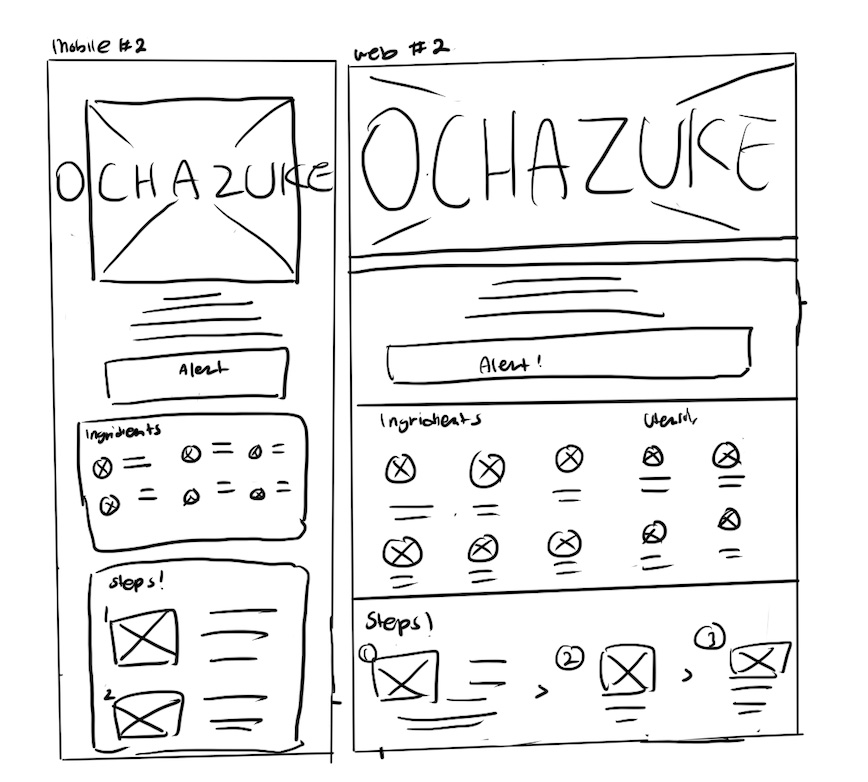 Mobile #2
OCHAZUKE
Alert
Ingridients
Steps!
1
2
web #2
OCHAZUKE
Alert!
Ingridients
Utensils
Steps!
1
>
2
>
3